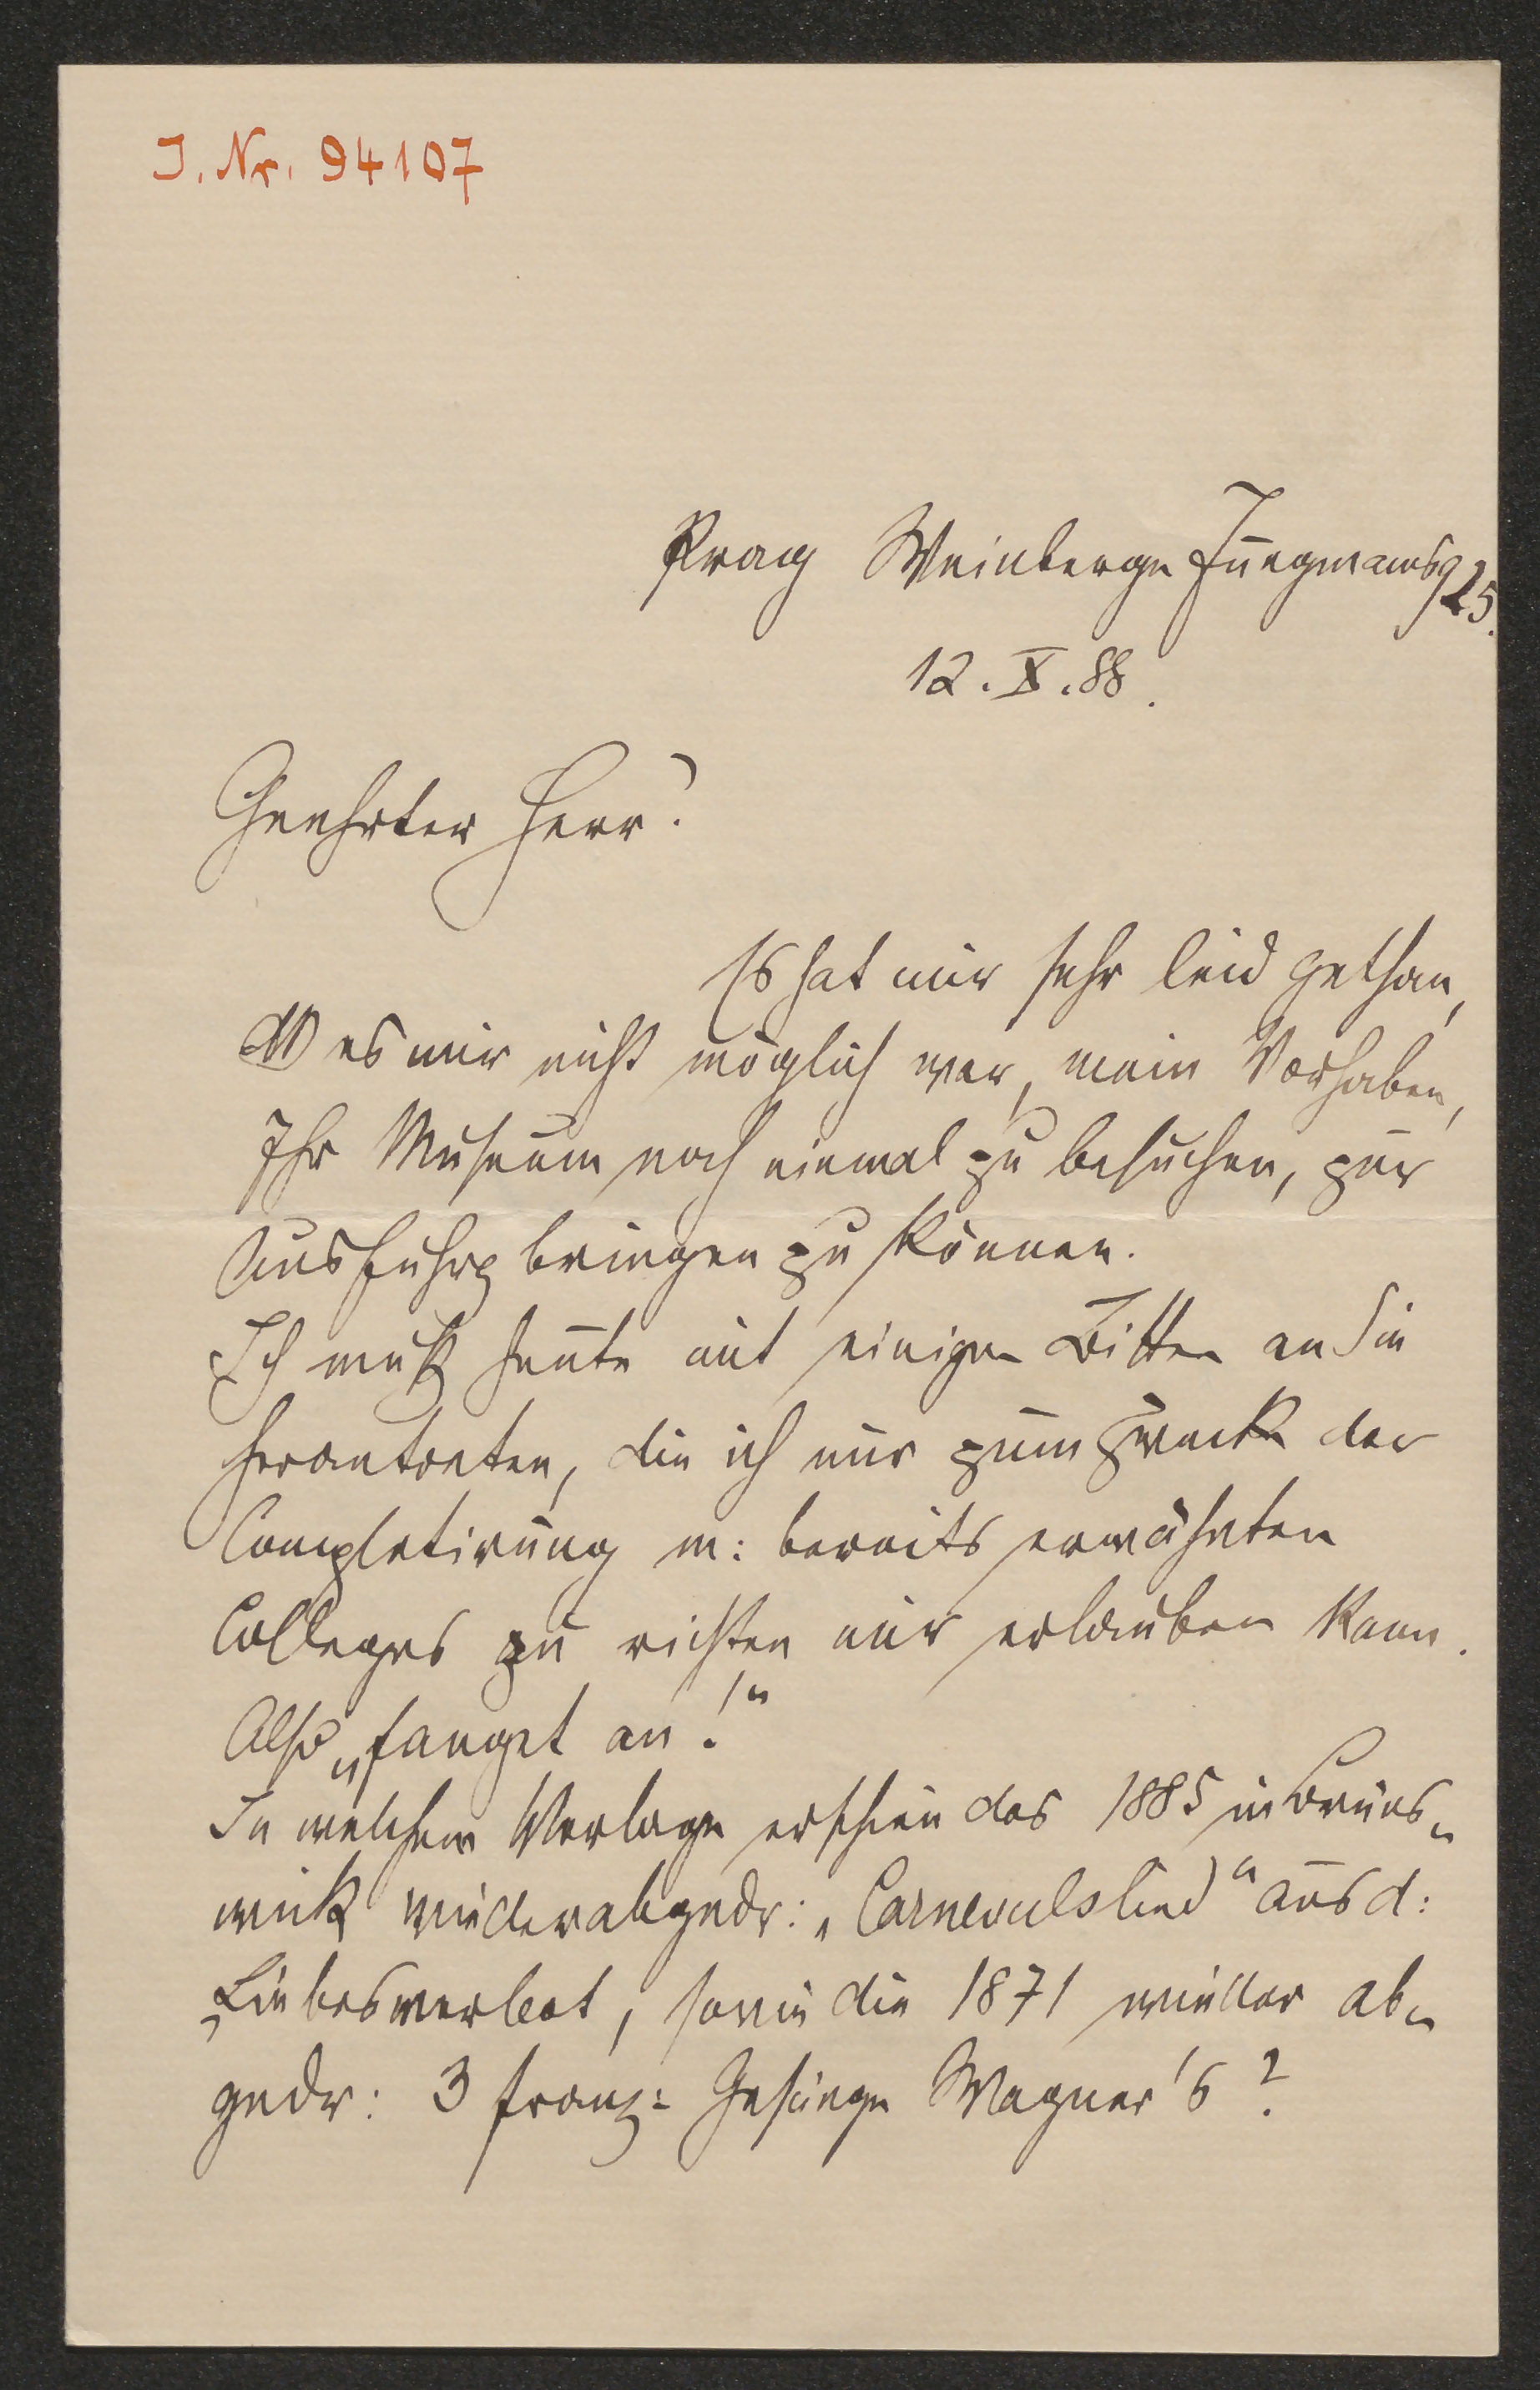 J. Nr. 94107
Prag Weinberge Jungmannsg 25.
12. X. 88.
Geehrter Herr!
Es hat mir sehr leid gethan,
daß es mir nicht möglich war, mein Vorhaben,
Ihr Museum noch einmal zu besuchen, zur
Ausführg bringen zu können.
Ich muß heute mit einigen Bitten an Sie
herantreten, die ich nur zum Zwecke der
Completirung m: bereits erwähnten
Colleges zu richten mir erlauben kann.
Also „fanget an!“
In welchem Verlage erschien das 1885 in Brauns-
wick wiederabgedr: „Carnevalslied“ aus d:
Liebesverbot, sowie die 1871 wieder ab-
gedr: 3 franz: Gesänge Wagner's?